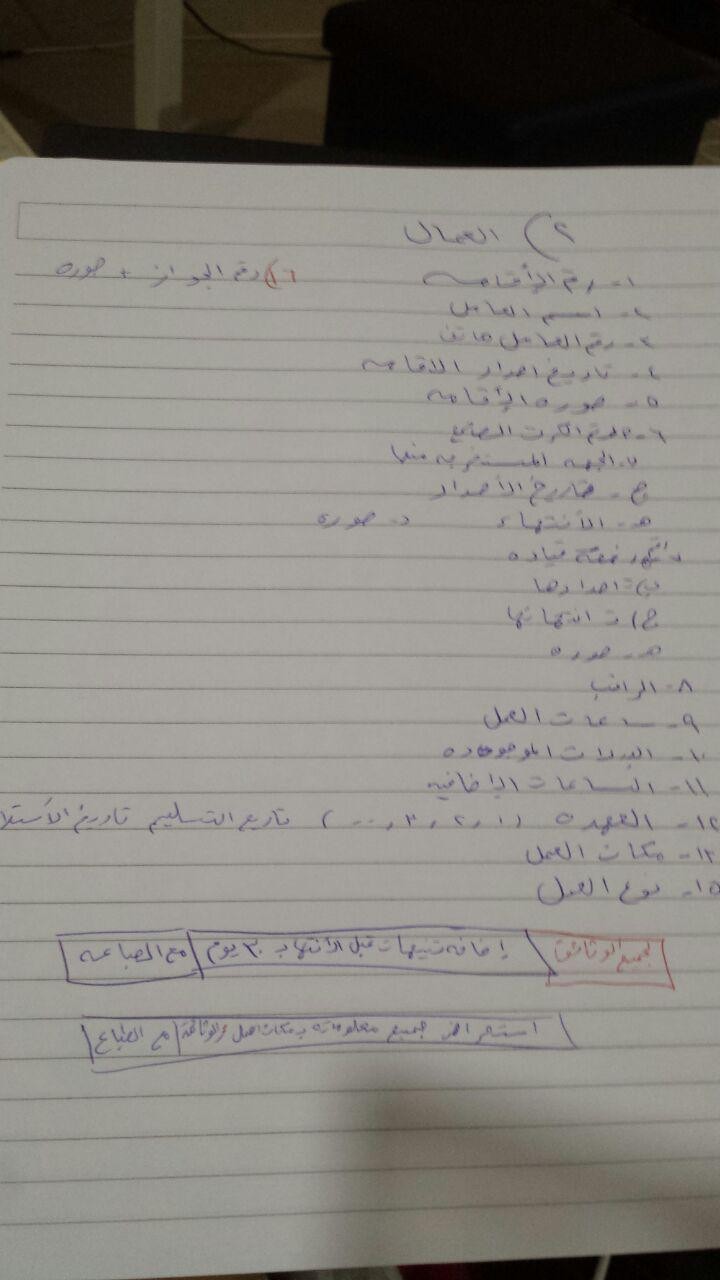 ٢) العمال
١- رقم الإقامه
١٦) رقم الجواز + صوره
٢- اسم العامل
٣- رقم العامل هاتف
٤- تاريخ اصدار الاقامه
٥- صوره الإقامه
٦- رقم الكرت الصحي
ج- تاريخ الأصدار
هـ- الأنتهاء د- صوره
رخصة قياده
ب) ت اصدارها
ج) ت انتهائها
هـ- صوره
٨- الراتب
٩- ساعات العمل
١٠- البدلات الموجوده
١١- الساعات الإضافيه
١٢- العهده (١, ٢, ٣, ...) تاريخ التسليم تاريخ الأستلا
١٣- مكان العمل
١٥- نوع العمل
لجميع الوثائق إضافه تنبيهات قبل الأنتهاء بـ ٣٠ يوم مع الطباعه
استعراض جميع معلوماته مع الطباع